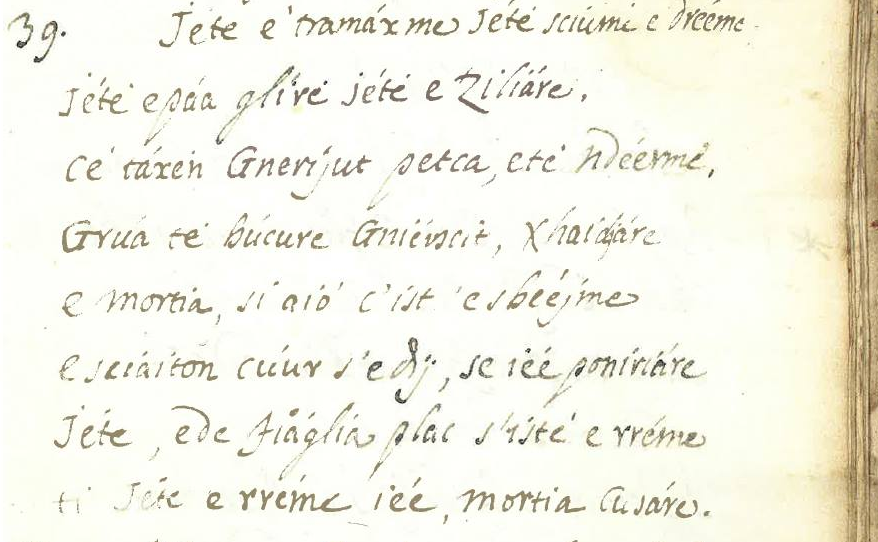 39. Jéte e tramáxme Jéte sciúmė e dréeme
Jéte epáa glíre jéte e ziliáre.
Cė táxėn Gnerijut petca, ete ndéermė,
Grúa tė búcure Gniérscit, xhaidjáre
e mortia, si aió c'ist 'esbéejme
esciaitón cúur s'e dij, se iée poniriáre
Jéte, ede fiáglia plac s'istė e rréme
ti Jéte e rréme iée, mortia Cusáre.